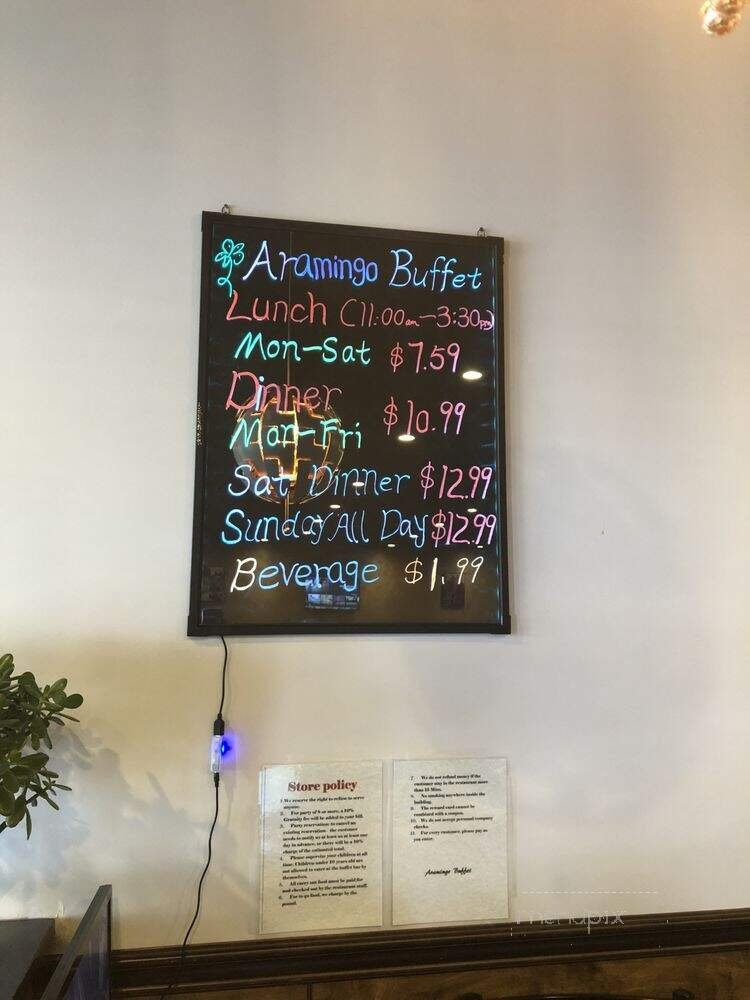 Aramingo Buffet
Lunch (11:00am-3:30pm)
Mon-Sat $7.59
Dinner
Mon-Fri $10.99
Sat Dinner $12.99
Sunday All Day $12.99
Beverage $1.99
Store policy
1. We reserve the right to refuse to serve
anyone.
2. For party of 8 or more, a 10%
Gratuity fee will be added to your bill.
3. Party reservation: to cancel an
existing reservation - the customer
needs to notify us at least at least one
day in advance, or there will be a 30%
charge of the estimated total.
4. Please supervise your children at all
time. Children under 10 years old are
not allowed to enter at the buffet bar by
themselves.
5. All carry out food must be paid for
and checked out by the restaurant staff.
6. For to go food, we charge by the
pound.
7. We do not refund money if the
customer stay in the restaurant more
than 15 Mins.
No smoking anywhere inside the
building.
The reward card cannot be
combined with a coupon.
10. We do not accept personal/company
checks.
11. For every customer, please pay as
you enter.
Aramingo Buffet
menupix